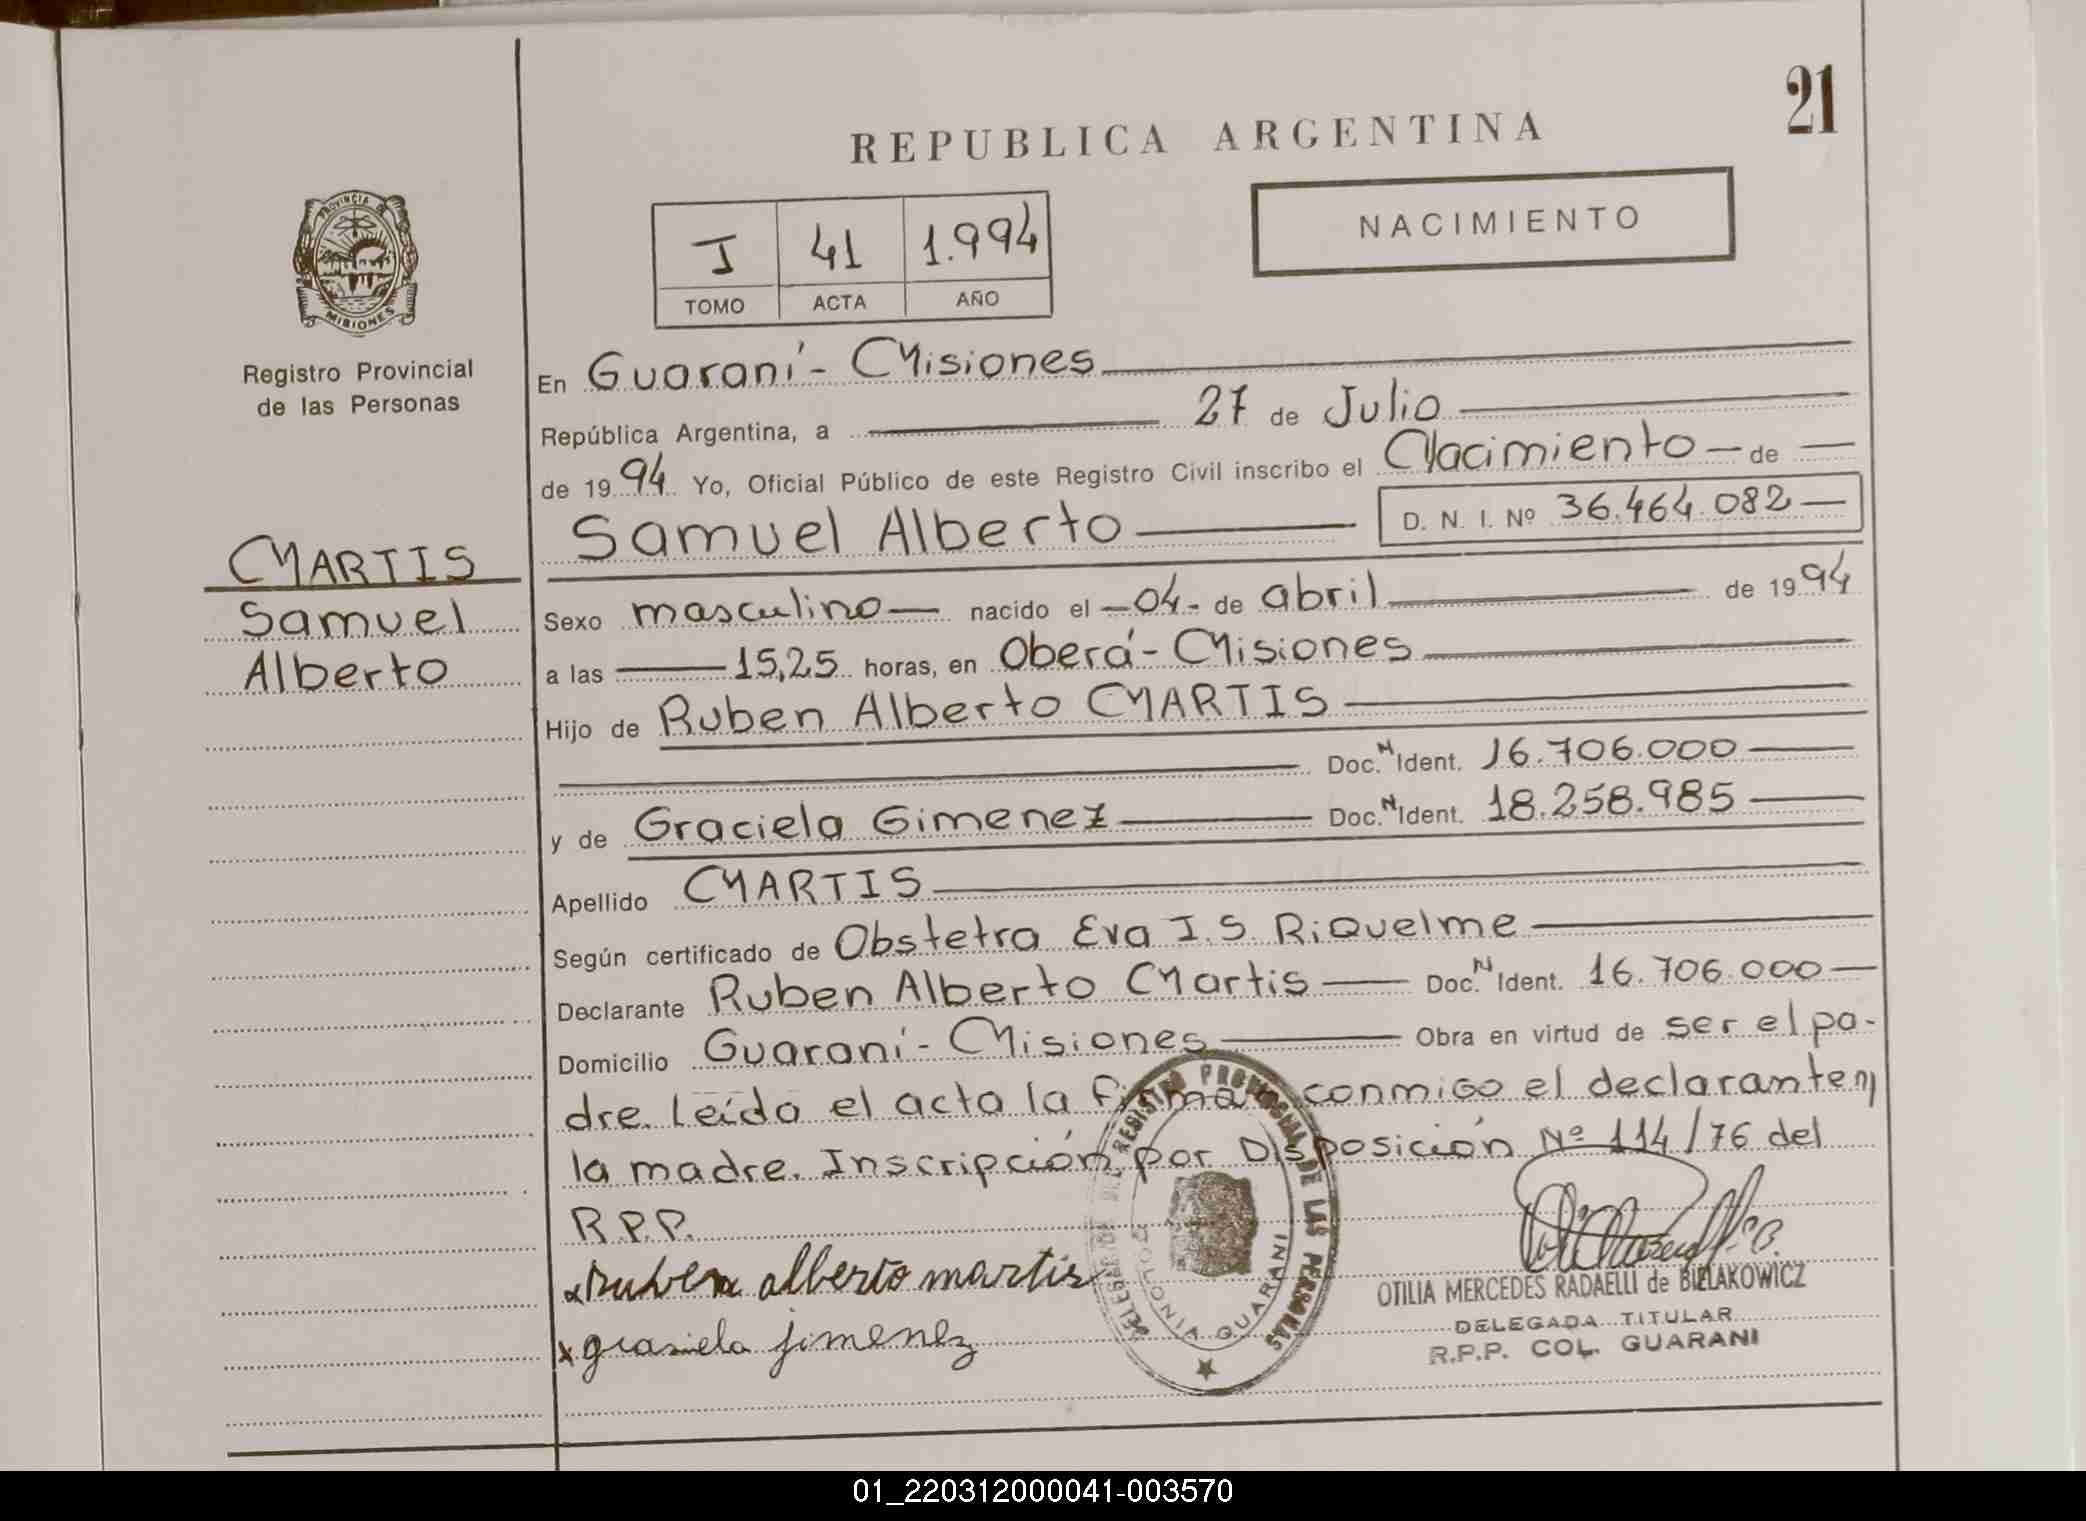 21
REPUBLICA ARGENTINA
NACIMIENTO
I 41 1.994
TOMO ACTA AÑO
PROVINCIA DE
MISIONES
Registro Provincial
de las Personas
MARTIS
Samuel
Alberto
En Guaraní - Misiones
República Argentina, a 27 de Julio
de 1994 Yo, Oficial Público de este Registro Civil inscribo el Nacimiento de
Samuel Alberto D. N. I. Nº 36.464.082
Sexo masculino nacido el -04- de abril de 1994
a las 15,25 horas, en Oberá - Misiones
Hijo de Ruben Alberto MARTIS
Doc. N Ident. 16.706.000
y de Graciela Gimenez Doc. N Ident. 18.258.985
Apellido MARTIS
Según certificado de Obstetra Eva I. S. Riquelme
Declarante Ruben Alberto Martis Doc. N Ident. 16.706.000
Domicilio Guaraní - Misiones Obra en virtud de ser el pa-
dre. Leída el acta la firman conmigo el declarante y
la madre. Inscripción por Disposición Nº 114/76 del
R.P.P.
x Ruben alberto martis
x grasiela jimenez
REGISTRO PROVINCIAL DE LAS PERSONAS
COLONIA GUARANI
OTILIA MERCEDES RADAELLI de BIELAKOWICZ
DELEGADA TITULAR
R.P.P. COL. GUARANI
01_220312000041-003570